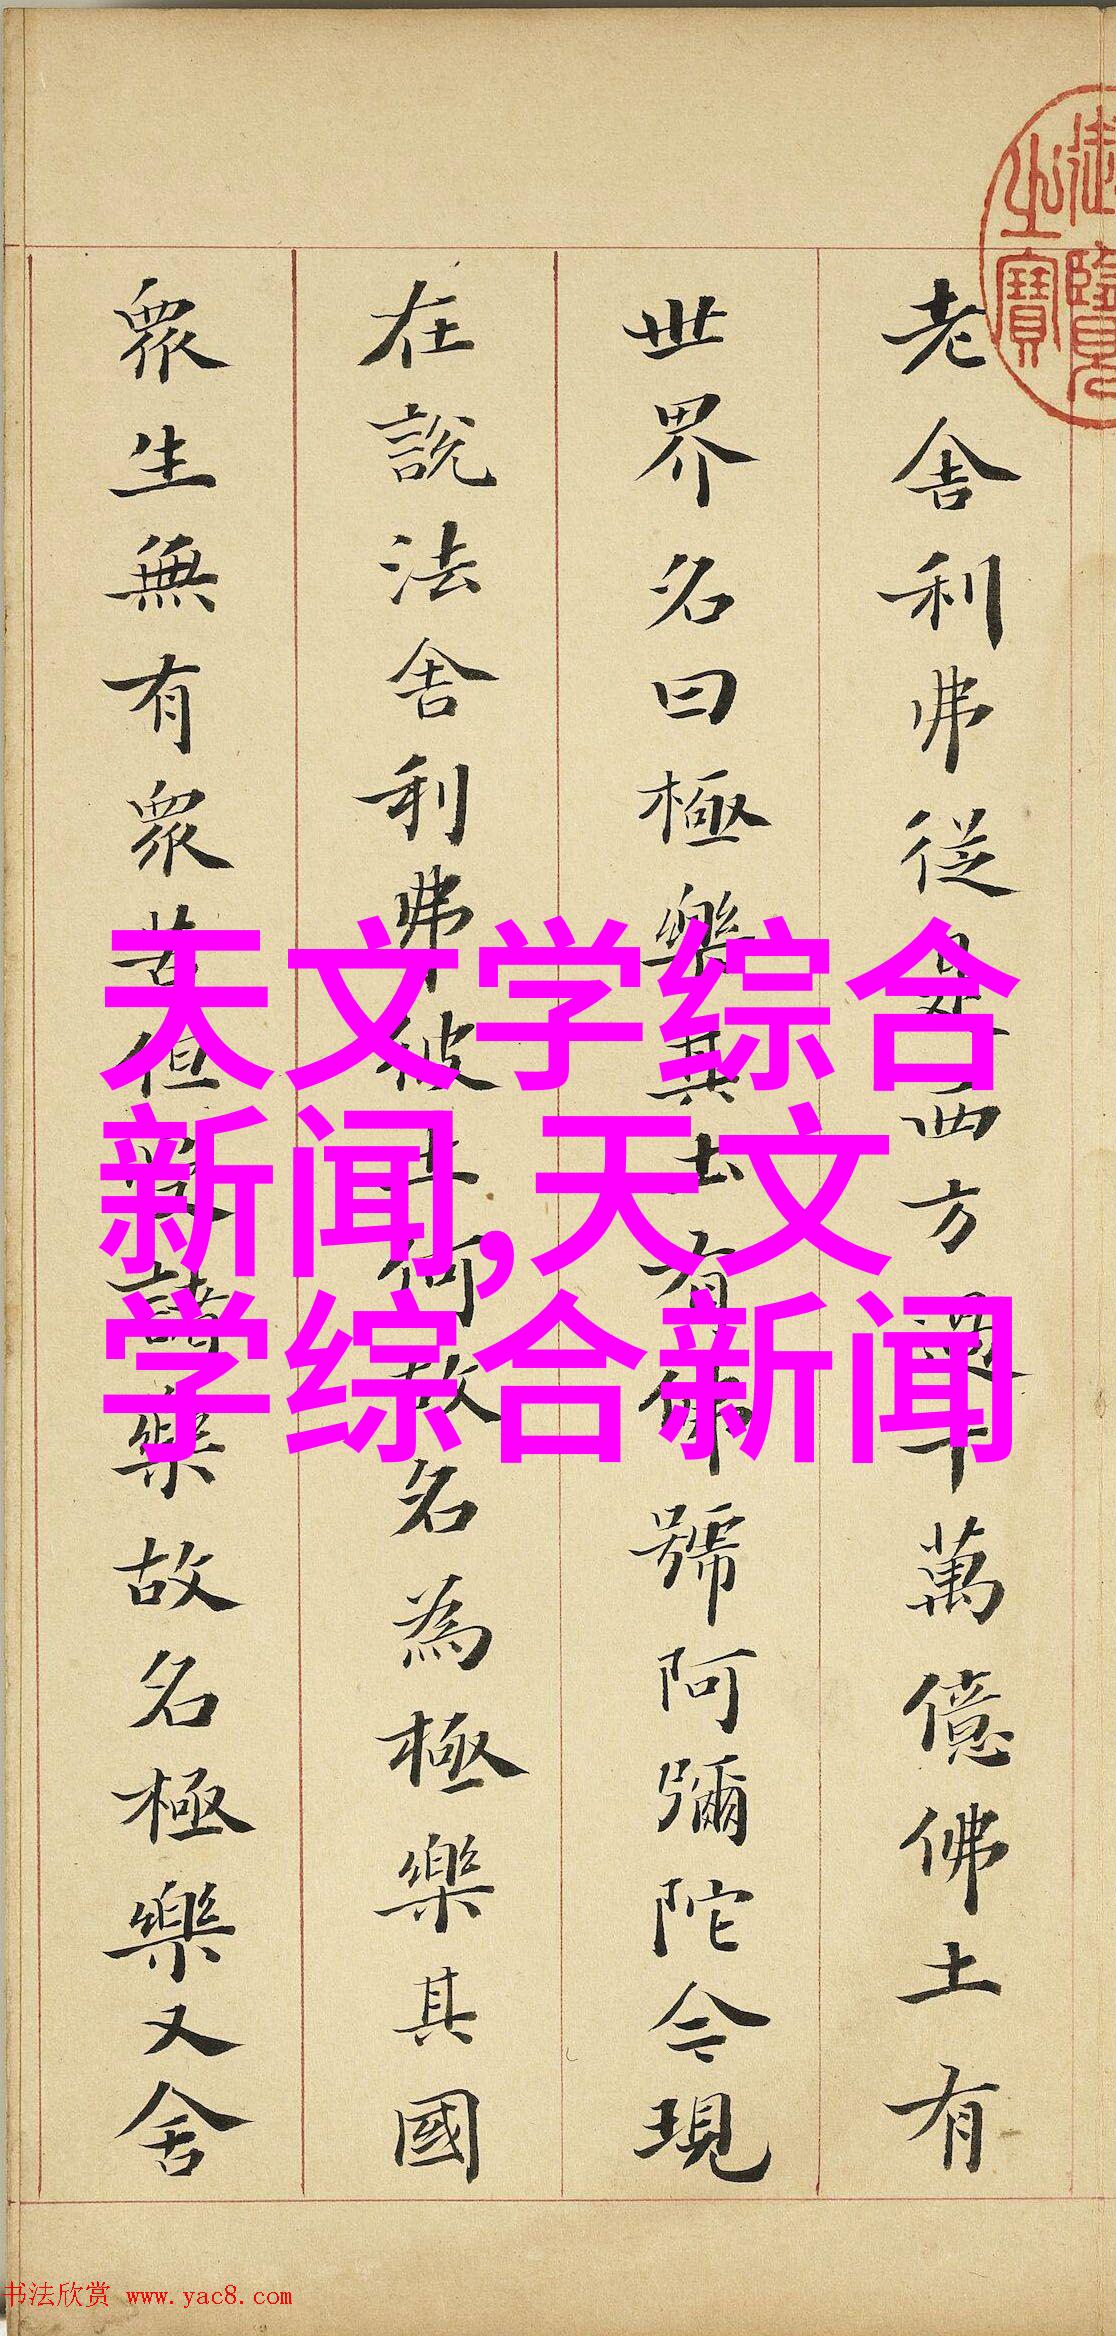 御覽
之寶
老舍利弗從是西方過十萬億佛土有
世界名曰極樂其土有佛號阿彌陀今現
在說法舍利弗彼土何故名為極樂其國
眾生無有眾苦但受諸樂故名極樂又舍
天文学综合
新闻,天文
学综合新闻
书法欣赏 www.yac8.com